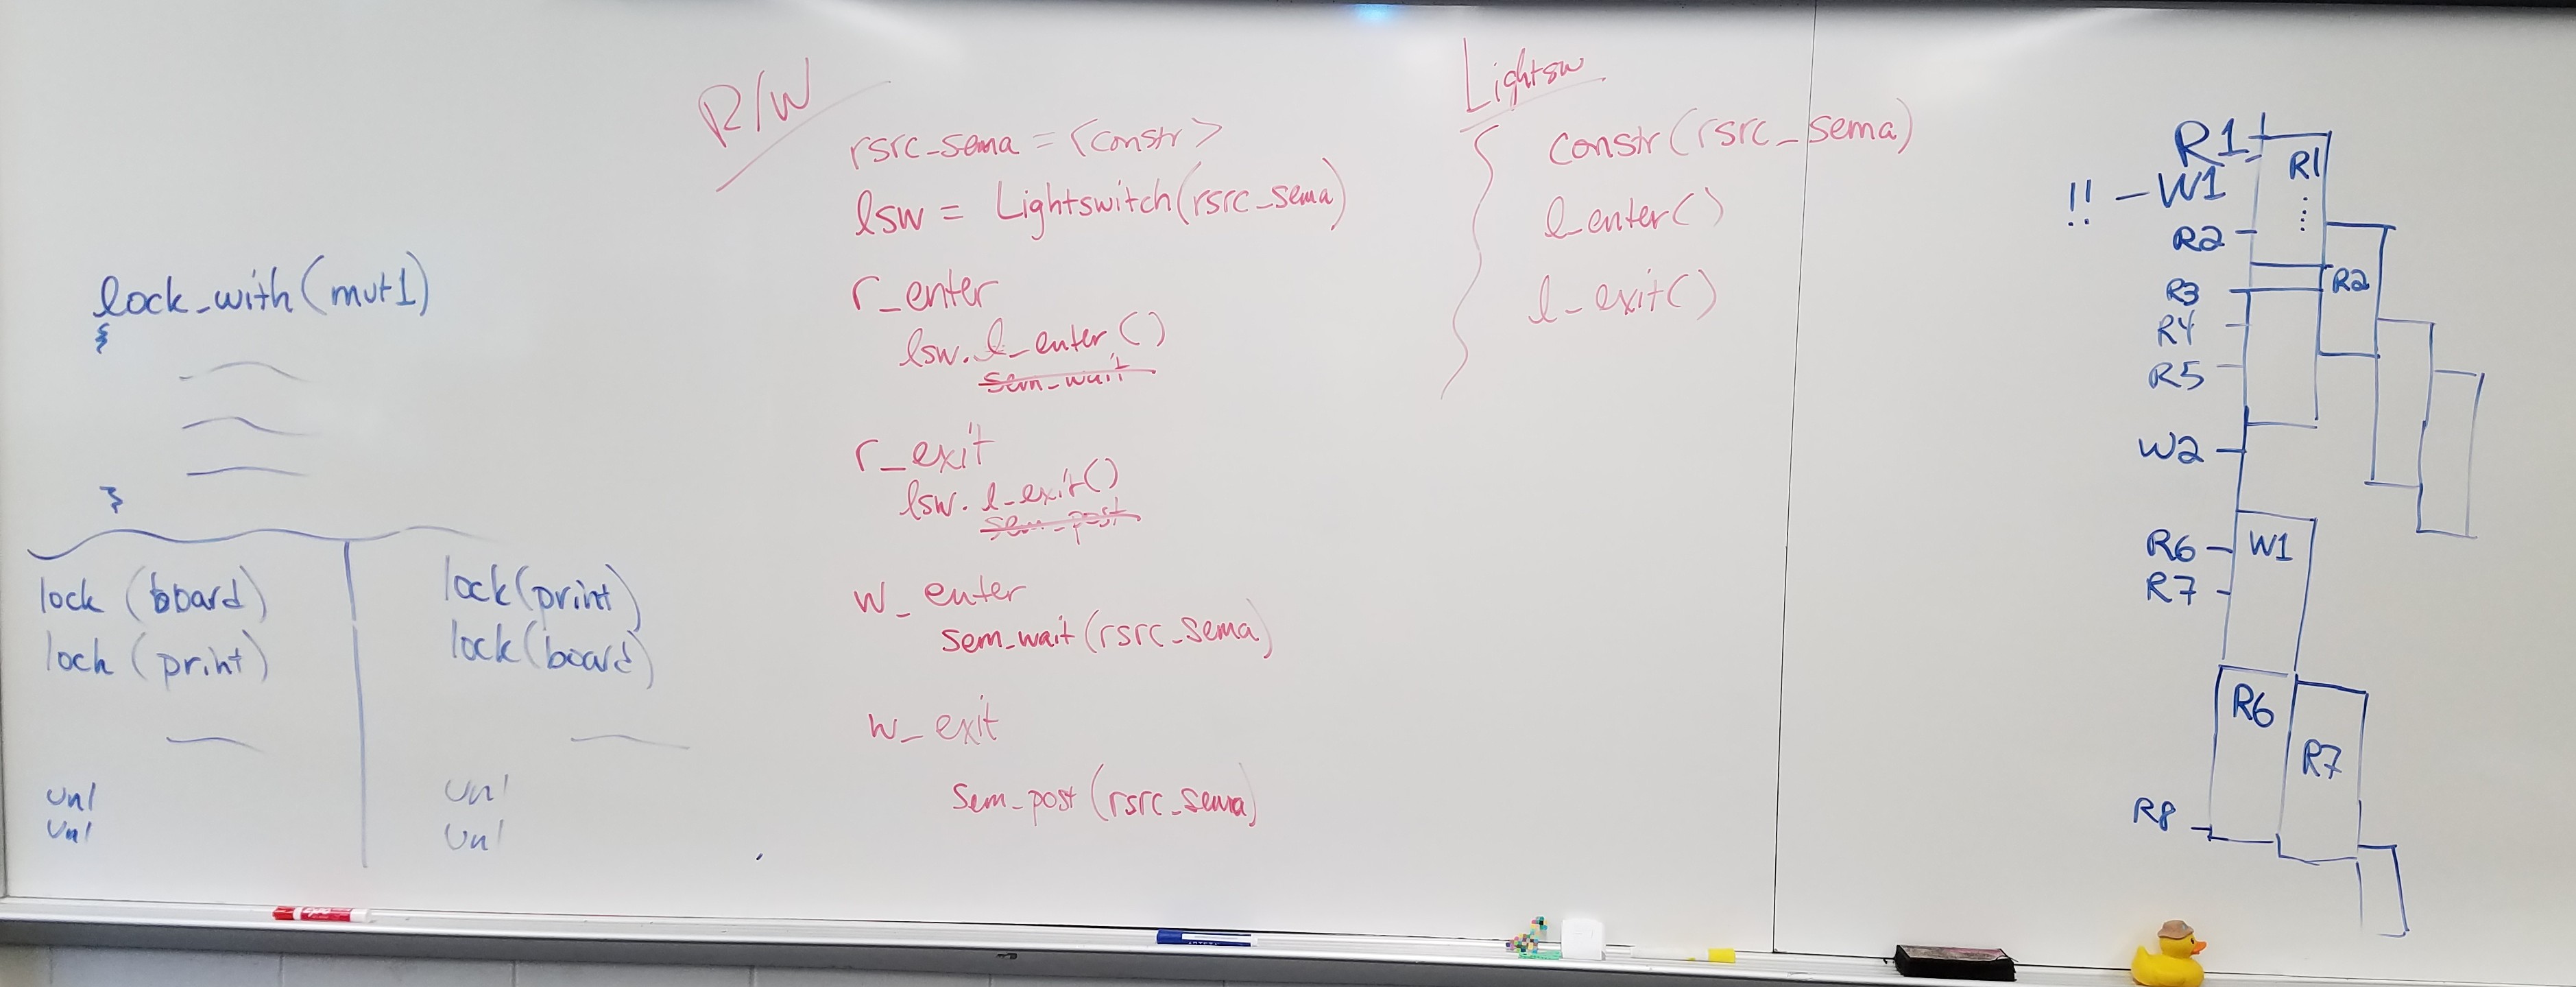 lock_with(mut1)
{
}
lock (board)
lock (print)
unl
unl
lock(print)
lock(board)
unl
unl
R/W
rsrc_sema = <constr>
lsw = Lightswitch(rsrc_sema)
r_enter
lsw. l_enter()
sem_wait
r_exit
lsw. l_exit()
sem_post
w_enter
sem_wait(rsrc_sema)
w_exit
sem_post(rsrc_sema)
Lightsw
{
constr(rsrc_sema)
l_enter()
l_exit()
R1
!! - W1
R2
R3
R4
R5
W2
R6
R7
R8
R1
R2
W1
R6
R7